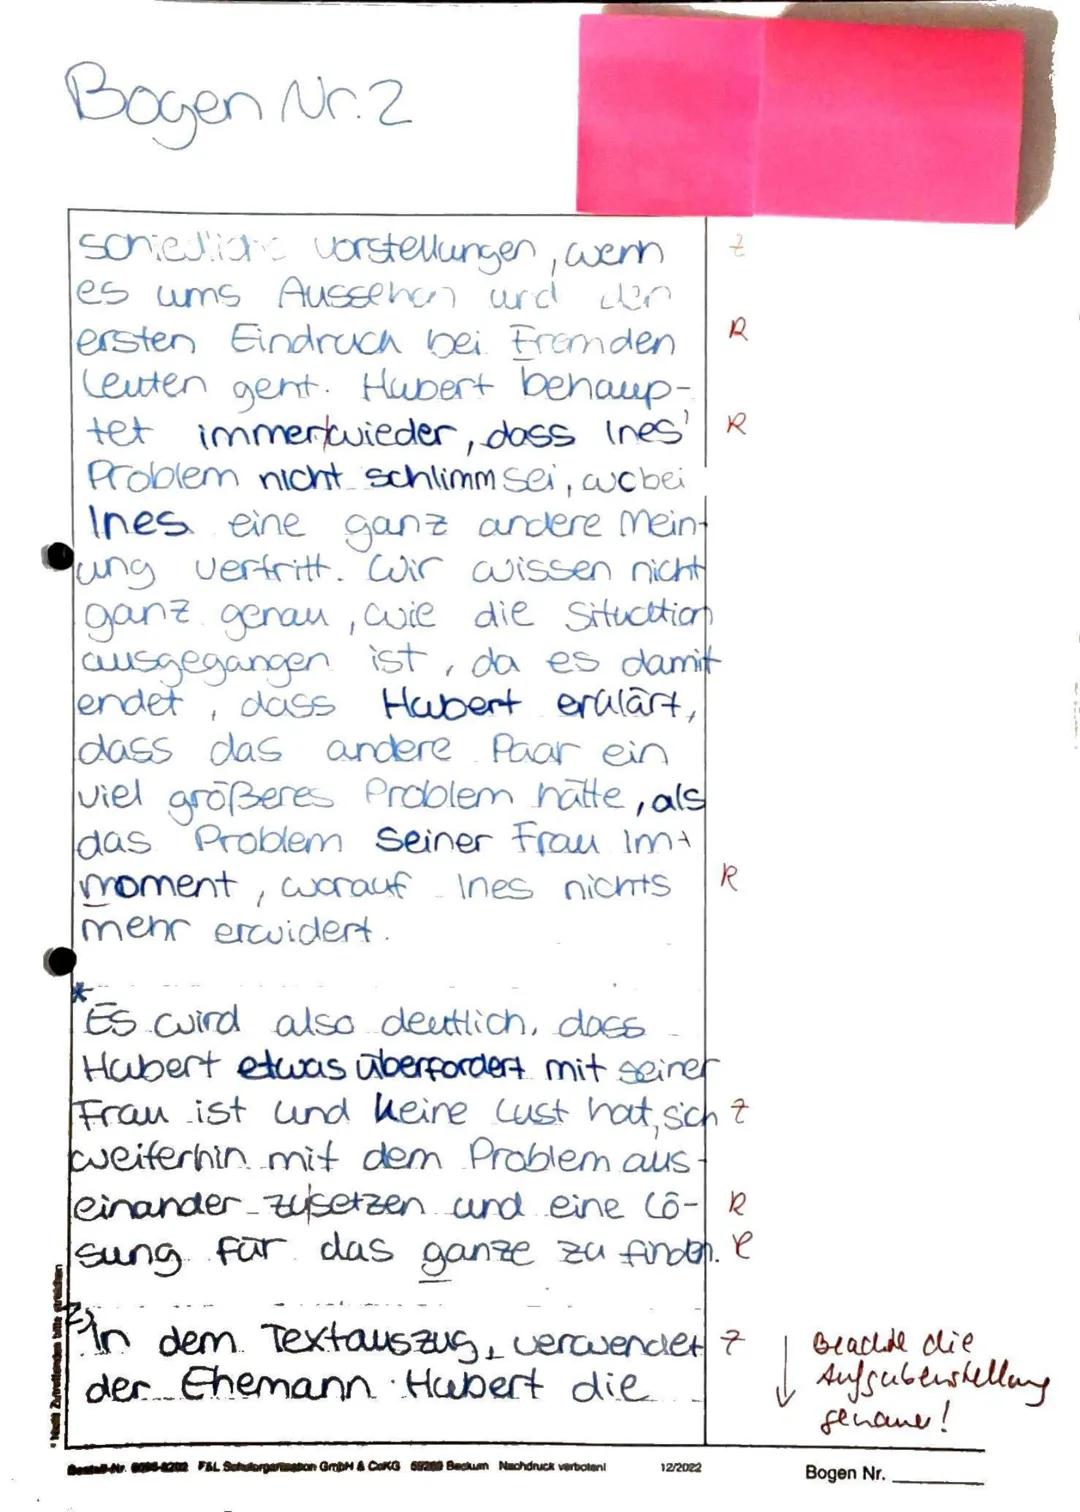 Bogen Nr. 2
schiedliche Vorstellungen, wenn Z
es ums Aussehen und den
ersten Eindruck bei Fremden R
Leuten geht. Hubert behaup-
tet immerwieder, dass Ines' R
Problem nicht schlimm sei, wobei
Ines eine ganz andere Mein-
ung vertritt. Wir wissen nicht
ganz genau, wie die Situation
ausgegangen ist, da es damit
endet, dass Hubert erklärt,
dass das andere Paar ein
viel größeres Problem hätte, als
das Problem seiner Frau im
moment, worauf Ines nichts R
mehr erwidert.
* Es wird also deutlich, dass
Hubert etwas überfordert mit seiner
Frau ist und keine Lust hat, sich Z
weiterhin mit dem Problem aus-
einander zusetzen und eine Lö- R
sung für das ganze zu finden. R
2) In dem Textauszug, verwendet Z
der Ehemann Hubert die
Beachte die
Aufgabenstellung
genauer!
* Nicht Zutreffendes bitte streichen
Bestell-Nr. F&L Schulorganisation GmbH & CoKG 59269 Beckum Nachdruck verboten! 12/2022
Bogen Nr.